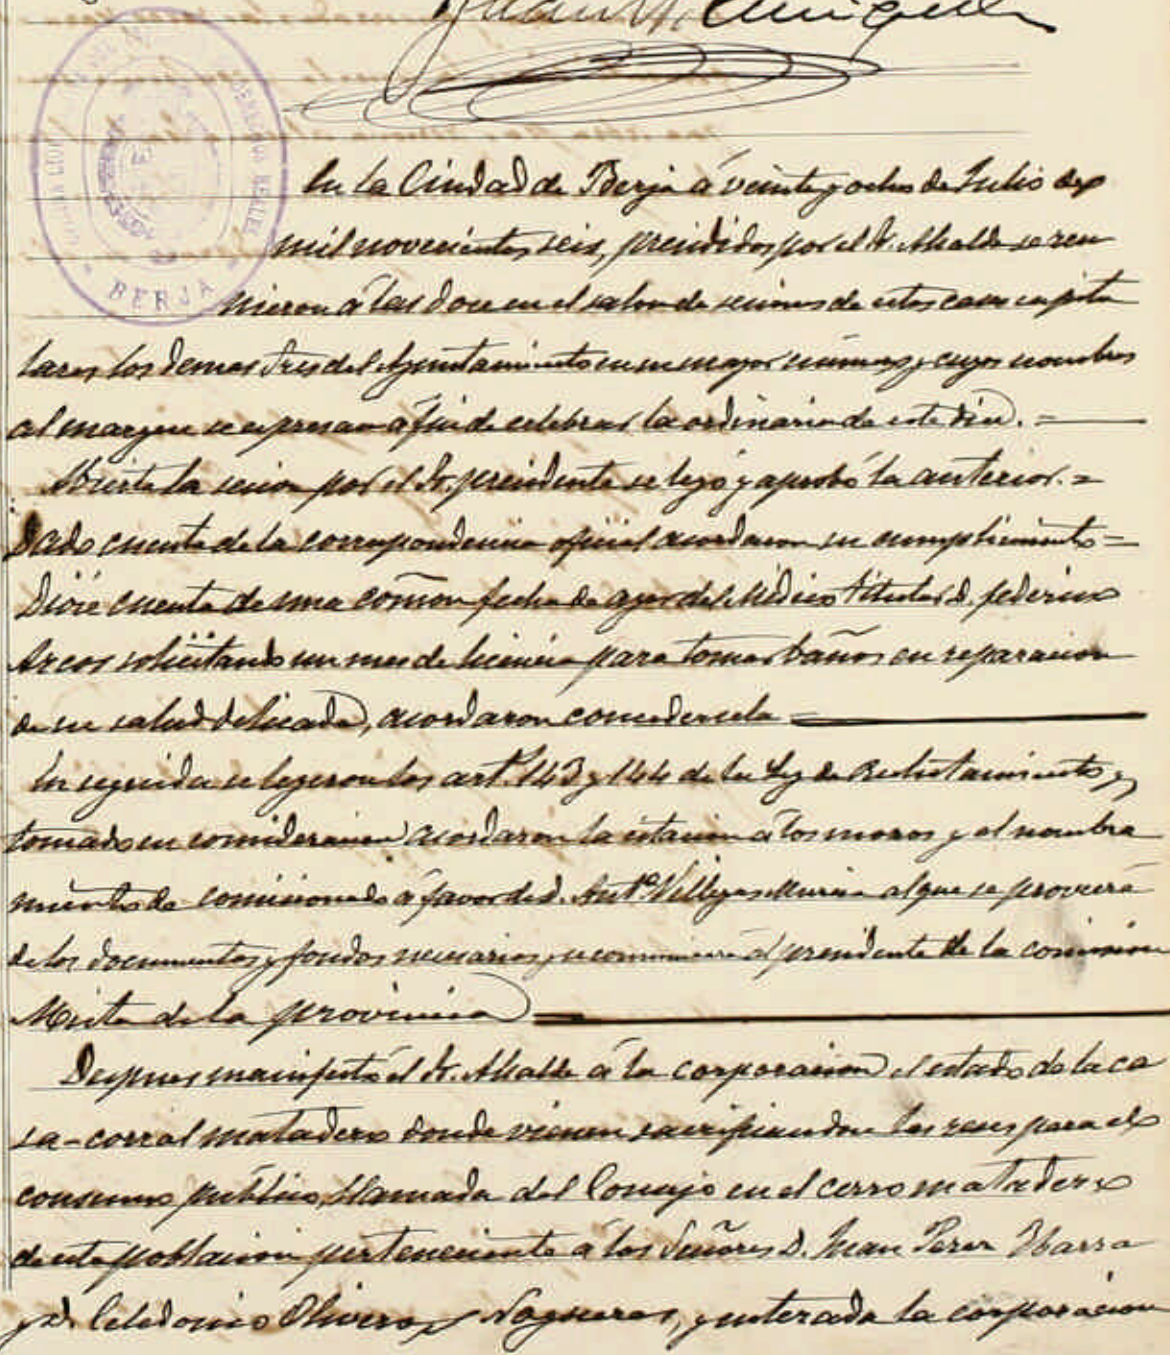 BERJA
En la Ciudad de Berja á veinte y ocho de Julio de
mil novecientos seis, presididos por el Sr. Alcalde se reu
nieron á las doce en el salon de sesiones de estas casas capitu
lares los demas Sres del Ayuntamiento en su mayor número, cuyos nombres
al margen se expresan á fin de celebrar la ordinaria de este dia. =
Abierta la sesion por el Sr. presidente se leyó y aprobó la anterior. =
Dado cuenta de la correspondencia oficial acordaron su cumplimiento =
Dióse cuenta de una comon fecha de ayer del Médico titular D. Federico
Arcos solicitando un mes de licencia para tomar baños en reparacion
de su salud delicada, acordaron concedersela
En seguida se leyeron los art.s 143 y 144 de la Ley de Reclutamiento, y
tomado en consideracion acordaron la citacion á los mozos y el nombra
miento de comisionado á favor de D. Ant.o Villegas Murcia al que se proveerá
de los documentos y fondos necesarios, y se comunicará al presidente de la comision
Mixta de la provincia
Despues manifestó el Sr. Alcalde á la corporacion el estado de la ca
sa-corral matadero donde vienen sacrificandose las reses para el
consumo público, llamada del Conejo en el cerro matadero
de esta poblacion perteneciente á los Señores D. Juan Perez Ibarra
y D. Celedonio Oliveros y Nogueras, y enterada la corporacion